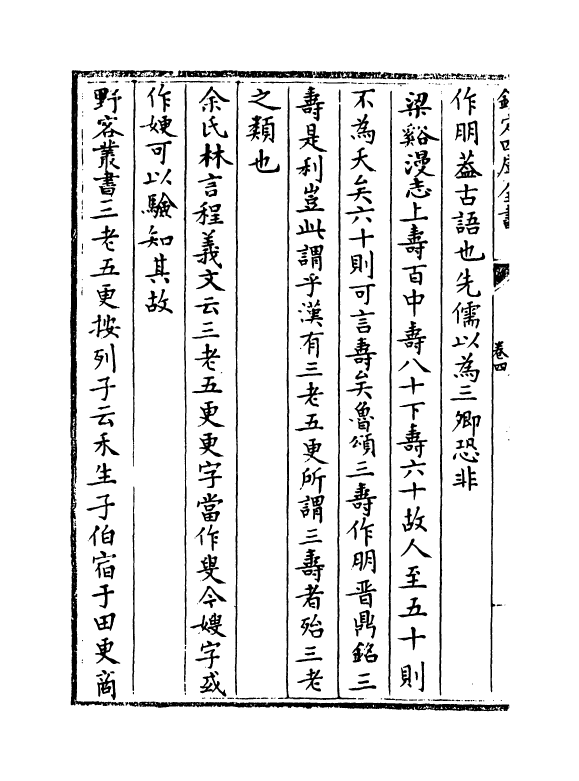 欽定四庫全書
卷四
作朋葢古語也先儒以為三卿恐非
梁谿漫志上壽百中壽八十下壽六十故人至五十則
不為夭矣六十則可言壽矣魯頌三壽作朋晋鼎銘三
壽是利豈此謂乎漢有三老五更所謂三壽者殆三老
之類也
余氏林言程義文云三老五更更字當作叟今嫂字或
作㛐可以驗知其故
野客叢書三老五更按列子云禾生子伯宿于田更商